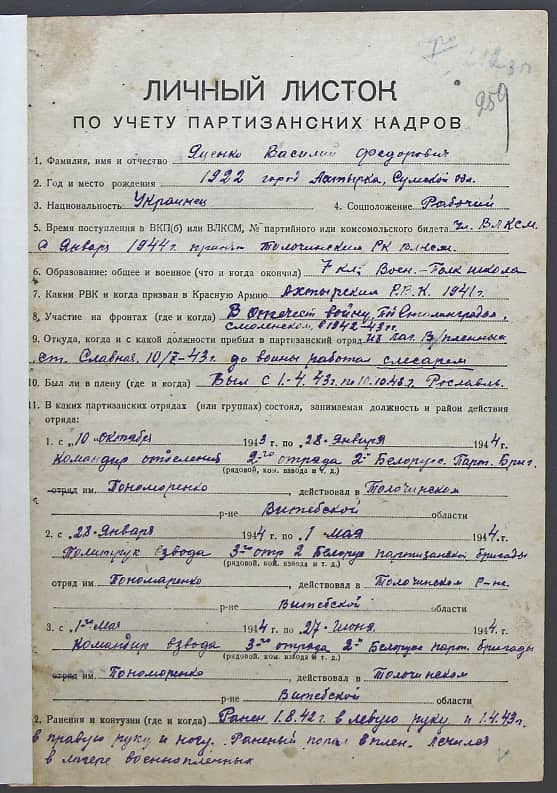 259
ЛИЧНЫЙ ЛИСТОК
ПО УЧЕТУ ПАРТИЗАНСКИХ КАДРОВ
1. Фамилия, имя и отчество Яценко Василий Федорович
2. Год и место рождения 1922 город Ахтырка, Сумской обл.
3. Национальность Украинец 4. Соцположение Рабочий
5. Время поступления в ВКП(б) или ВЛКСМ, № партийного или комсомольного билета чл. ВЛКСМ
с Января 1944 г. принят Толочинским РК ВЛКСМ.
6. Образование: общее и военное (что и когда окончил) 7 кл; Воен.-Полк школа
7. Каким РВК и когда призван в Красную Армию Ахтырским Р.В.К. 1941 г.
8. Участие на фронтах (где и когда) В Отечест войну, под Сталинградом,
Смоленском, в 1942-43 гг.
9. Откуда, когда и с какой должности прибыл в партизанский отряд из лаг. В/пленных
ст. Славная, 10/X-43 г. до войны работал слесарем
10. Был ли в плену (где и когда) Был с 1.-4.43 г. по 10.10.43 г. Рославль.
11. В каких партизанских отрядах (или группах) состоял, занимаемая должность и район действия
отряда:
1. с „10 Октября 1943 г. по 28 Января 1944 г.
Командир отделения 2-го отряда 2-й Белорусс. Парт. Бриг.
(рядовой, ком. взвода и т. д.)
отряд им. Пономоренко, действовал в Толочинском
р-не Витебской области
2. с „28 Января 1944 г. по 1 мая 1944 г.
Политрук взвода 3-го отр 2 Белорус партизанской бригады
(рядовой, ком. взвода и т. д.)
отряд им. Пономаренко, действовал в Толочинском р-не.
р-не Витебской области
3. с „1-го Мая 1944 г. по 27 Июня. 1944 г.
Командир взвода 3-го отряда 2-й Белорус парт. бригады
(рядовой, ком. взвода и т. д.)
отряд им. Пономоренко, действовал в Толочинском
р-не Витебской области
2. Ранения и контузии (где и когда) Ранен 1.8.42 г. в левую руку и 1.4.43 г.
в правую руку и ногу. Раненый попал в плен. Лечился
в лагере военнопленных